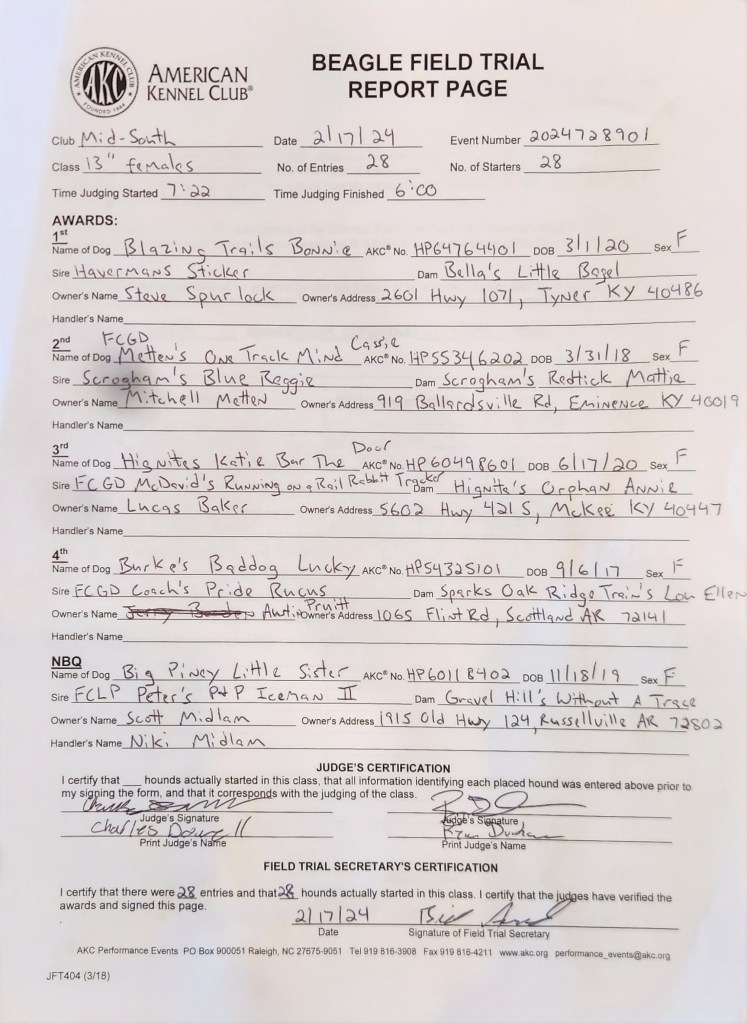 AMERICAN KENNEL CLUB
AKC
FOUNDED 1884
AMERICAN
KENNEL CLUB®
BEAGLE FIELD TRIAL
REPORT PAGE
Club Mid-South Date 2/17/24 Event Number 2024728901
Class 13" females No. of Entries 28 No. of Starters 28
Time Judging Started 7:22 Time Judging Finished 6:00
AWARDS:
1st
Name of Dog Blazing Trails Bonnie AKC® No. HP64764401 DOB 3/1/20 Sex F
Sire Havermans Sticker Dam Bella's Little Bagel
Owner's Name Steve Spurlock Owner's Address 2601 Hwy 1071, Tyner KY 40486
Handler's Name
2nd FCGD Cassie
Name of Dog Metten's One Track Mind AKC® No. HP55346202 DOB 3/31/18 Sex F
Sire Scrogham's Blue Reggie Dam Scrogham's Redtick Mattie
Owner's Name Mitchell Metten Owner's Address 919 Ballardsville Rd, Eminence KY 40019
Handler's Name
3rd Door
Name of Dog Hignites Katie Bar The AKC® No. HP60498601 DOB 6/17/20 Sex F
Sire FCGD McDavid's Running on a Rail Rabbit Tracker Dam Hignite's Orphan Annie
Owner's Name Lucas Baker Owner's Address 5602 Hwy 421 S, McKee KY 40447
Handler's Name
4th
Name of Dog Burke's Baddog Lucky AKC® No. HP54325101 DOB 9/6/17 Sex F
Sire FCGD Coach's Pride Rucus Dam Sparks Oak Ridge Train's Lou Ellen
Owner's Name Pruitt Owner's Address 1065 Flint Rd, Scottland AR 72141
Handler's Name
NBQ
Name of Dog Big Piney Little Sister AKC® No. HP60118402 DOB 11/18/19 Sex F
Sire FCLP Peter's P+P Iceman II Dam Gravel Hill's Without A Trace
Owner's Name Scott Midlam Owner's Address 1915 Old Hwy 124, Russellville AR 72802
Handler's Name Niki Midlam
JUDGE'S CERTIFICATION
I certify that ___ hounds actually started in this class, that all information identifying each placed hound was entered above prior to
my signing the form, and that it corresponds with the judging of the class.
Judge's Signature Judge's Signature
Charles
Print Judge's Name Print Judge's Name
FIELD TRIAL SECRETARY'S CERTIFICATION
I certify that there were 28 entries and that 28 hounds actually started in this class. I certify that the judges have verified the
awards and signed this page.
2/17/24
Date Signature of Field Trial Secretary
AKC Performance Events PO Box 900051 Raleigh, NC 27675-9051 Tel 919 816-3908 Fax 919 816-4211 www.akc.org performance_events@akc.org
JFT404 (3/18)